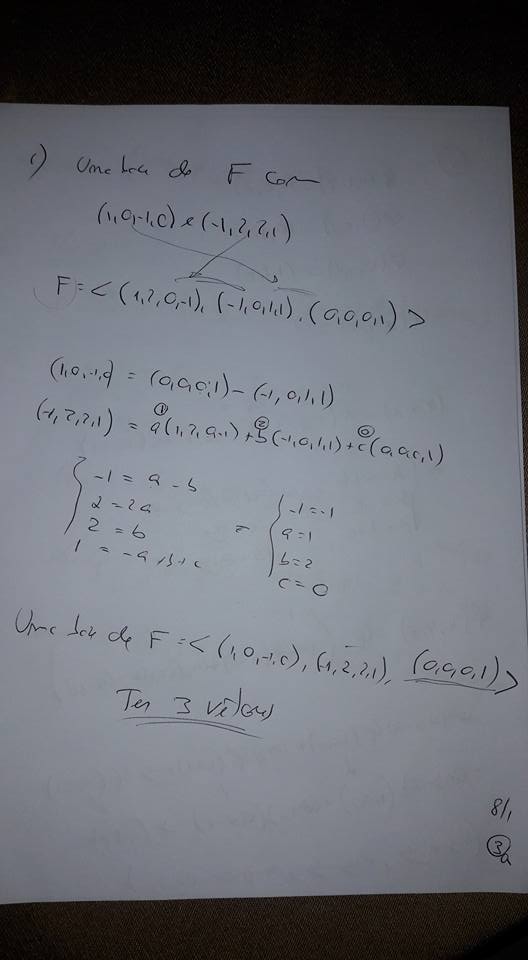 c) Uma base de F com
(1,0,-1,0) e (-1,2,2,1)
F = < (1,2,0,-1), (-1,0,1,1), (0,0,0,1) >
(1,0,-1,0) = (0,0,0,1) - (-1,0,1,1)
(-1,2,2,1) = a(1,2,0,-1) + b(-1,0,1,1) + c(0,0,0,1)
① ② ⓪
{ -1 = a - b = { -1=-1
2 = 2a a=1
2 = b b=2
1 = -a + b + c c=0
Uma base de F = < (1,0,-1,0), (-1,2,2,1), (0,0,0,1) >
Tem 3 vetores
8/1